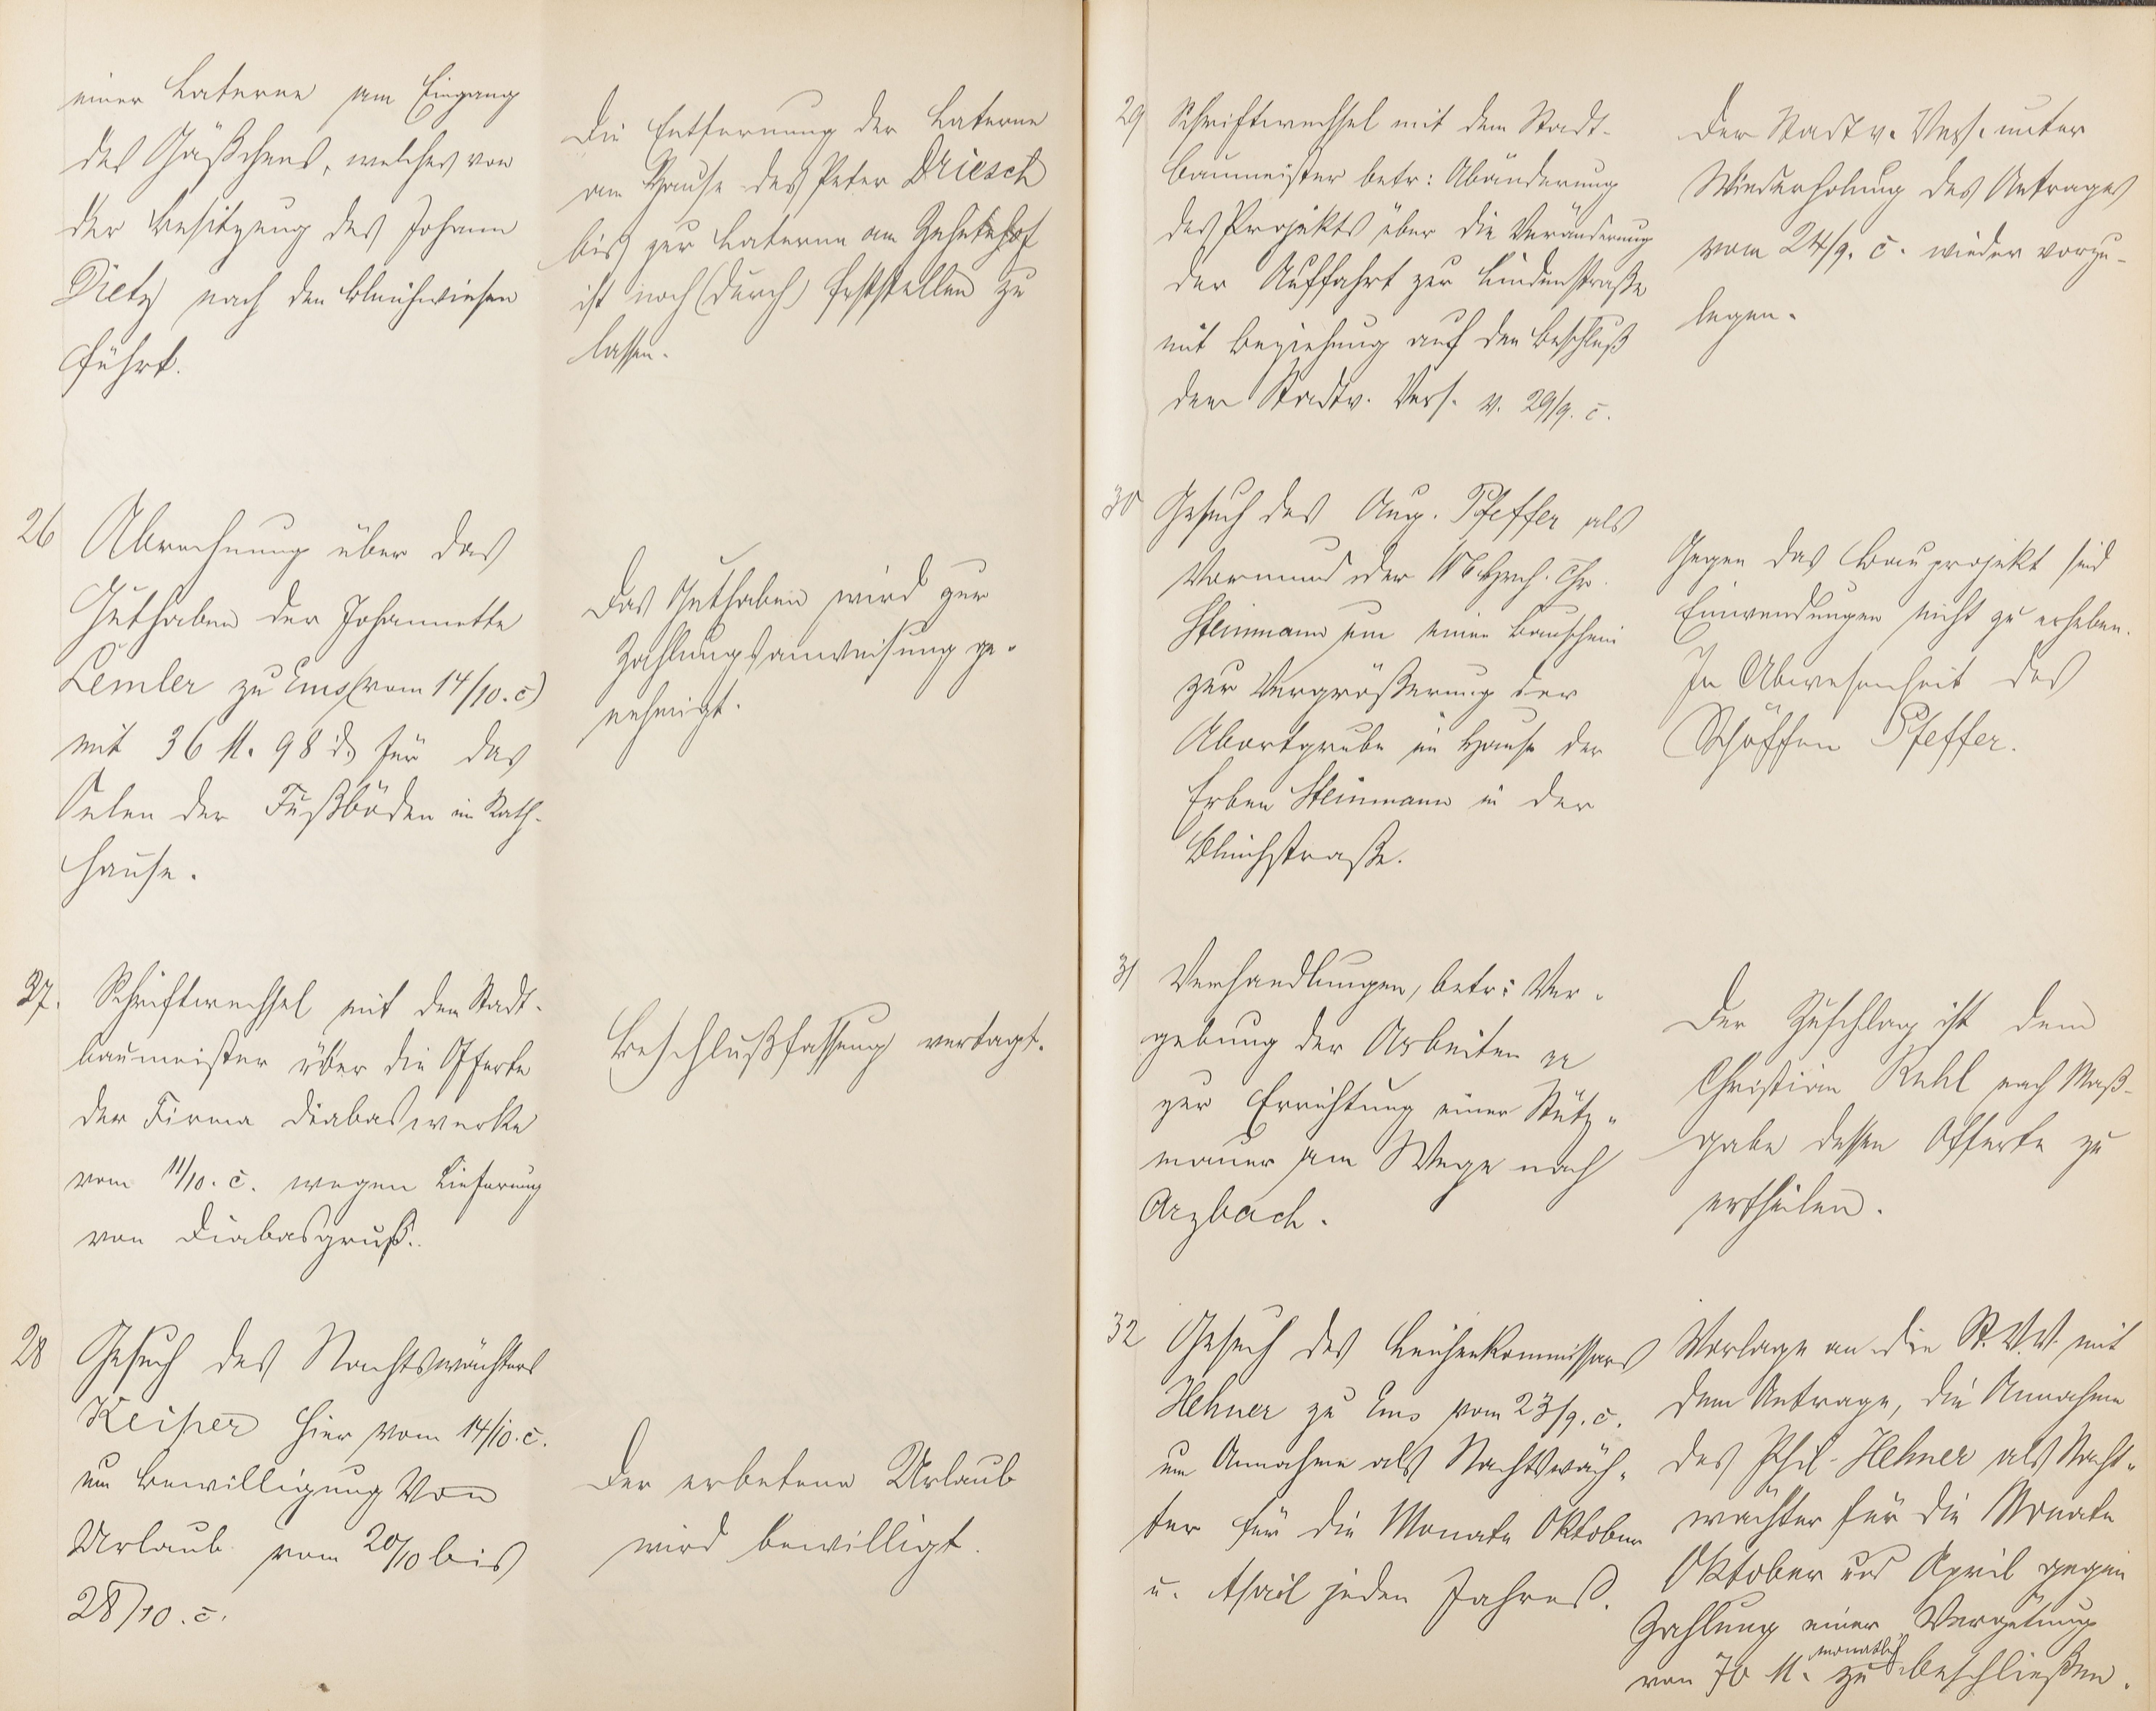 einer Laterne am Eingang
des Gäßchens, welches von
der Besitzung des Johann
Dietz nach den Bleichwiesen
führt.
Die Entfernung der Laterne
am Hause des Peter Driesch
bis zur Laterne am Zehntehof
ist noch (durch) feststellen zu
lassen.
26 Abrechnung über das
Guthaben der Johannette
Lemler zu Ems (vom 14/10. c)
mit 36 M. 98 d für das
Oelen der Fußböden im Rath-
hause.
Das Guthaben wird zur
Zahlungsanweisung ge-
nehmigt.
27. Schriftwechsel mit dem Stadt-
baumeister über die Offerte
der Firma Diabaswerke
vom 11/10. c. wegen Lieferung
von Diabasgruß.
Beschlußfassung vertagt.
28 Gesuch des Nachtswächters
Keiper hier vom 14/10. c.
um Bewilligung von
Urlaub vom 20/10 bis
28/10. c.
Der erbetene Urlaub
wird bewilligt.
29 Schriftwechsel mit dem Stadt-
baumeister betr: Abänderung
des Projekts über die Veränderung
der Auffahrt zur Lindenstraße
mit Beziehung auf den Beschluß
der Stadtv. Vers. v. 29/9. c.
Der Stadtv. Vers. unter
Wiederholung des Antrages
vom 24/9. c. wieder vorzu-
legen.
30 Gesuch des Aug. Pfeffer als
Vormund der Hch. Chr.
Steinmann um einen Bauschein
zur Vergrößerung der
Abortgrube im Hause der
Erben Steinmann in der
Bleichstraße.
Gegen das Bauprojekt sind
Einwendungen nicht zu erheben.
In Abwesenheit des
Schöffen Pfeffer.
31 Verhandlungen, betr: Ver-
gebung der Arbeiten pp
zur Errichtung einer Stütz-
mauer am Wege nach
Arzbach.
Der Zuschlag ist dem
Christian Ruhl nach Maß-
gabe dessen Offerte zu
ertheilen.
32 Gesuch des Leichenkommissars
Hehner zu Ems vom 23/9. c.
um Annahme als Nachtswäch-
ter für die Monate Oktober
u. April jeden Jahres.
Vorlage an die St. V. V. mit
dem Antrage, die Annahme
des Phil. Hehner als Nacht-
wächter für die Monate
Oktober und April gegen
Zahlung einer Vergütung
von 70 M. monatlich zu beschließen.